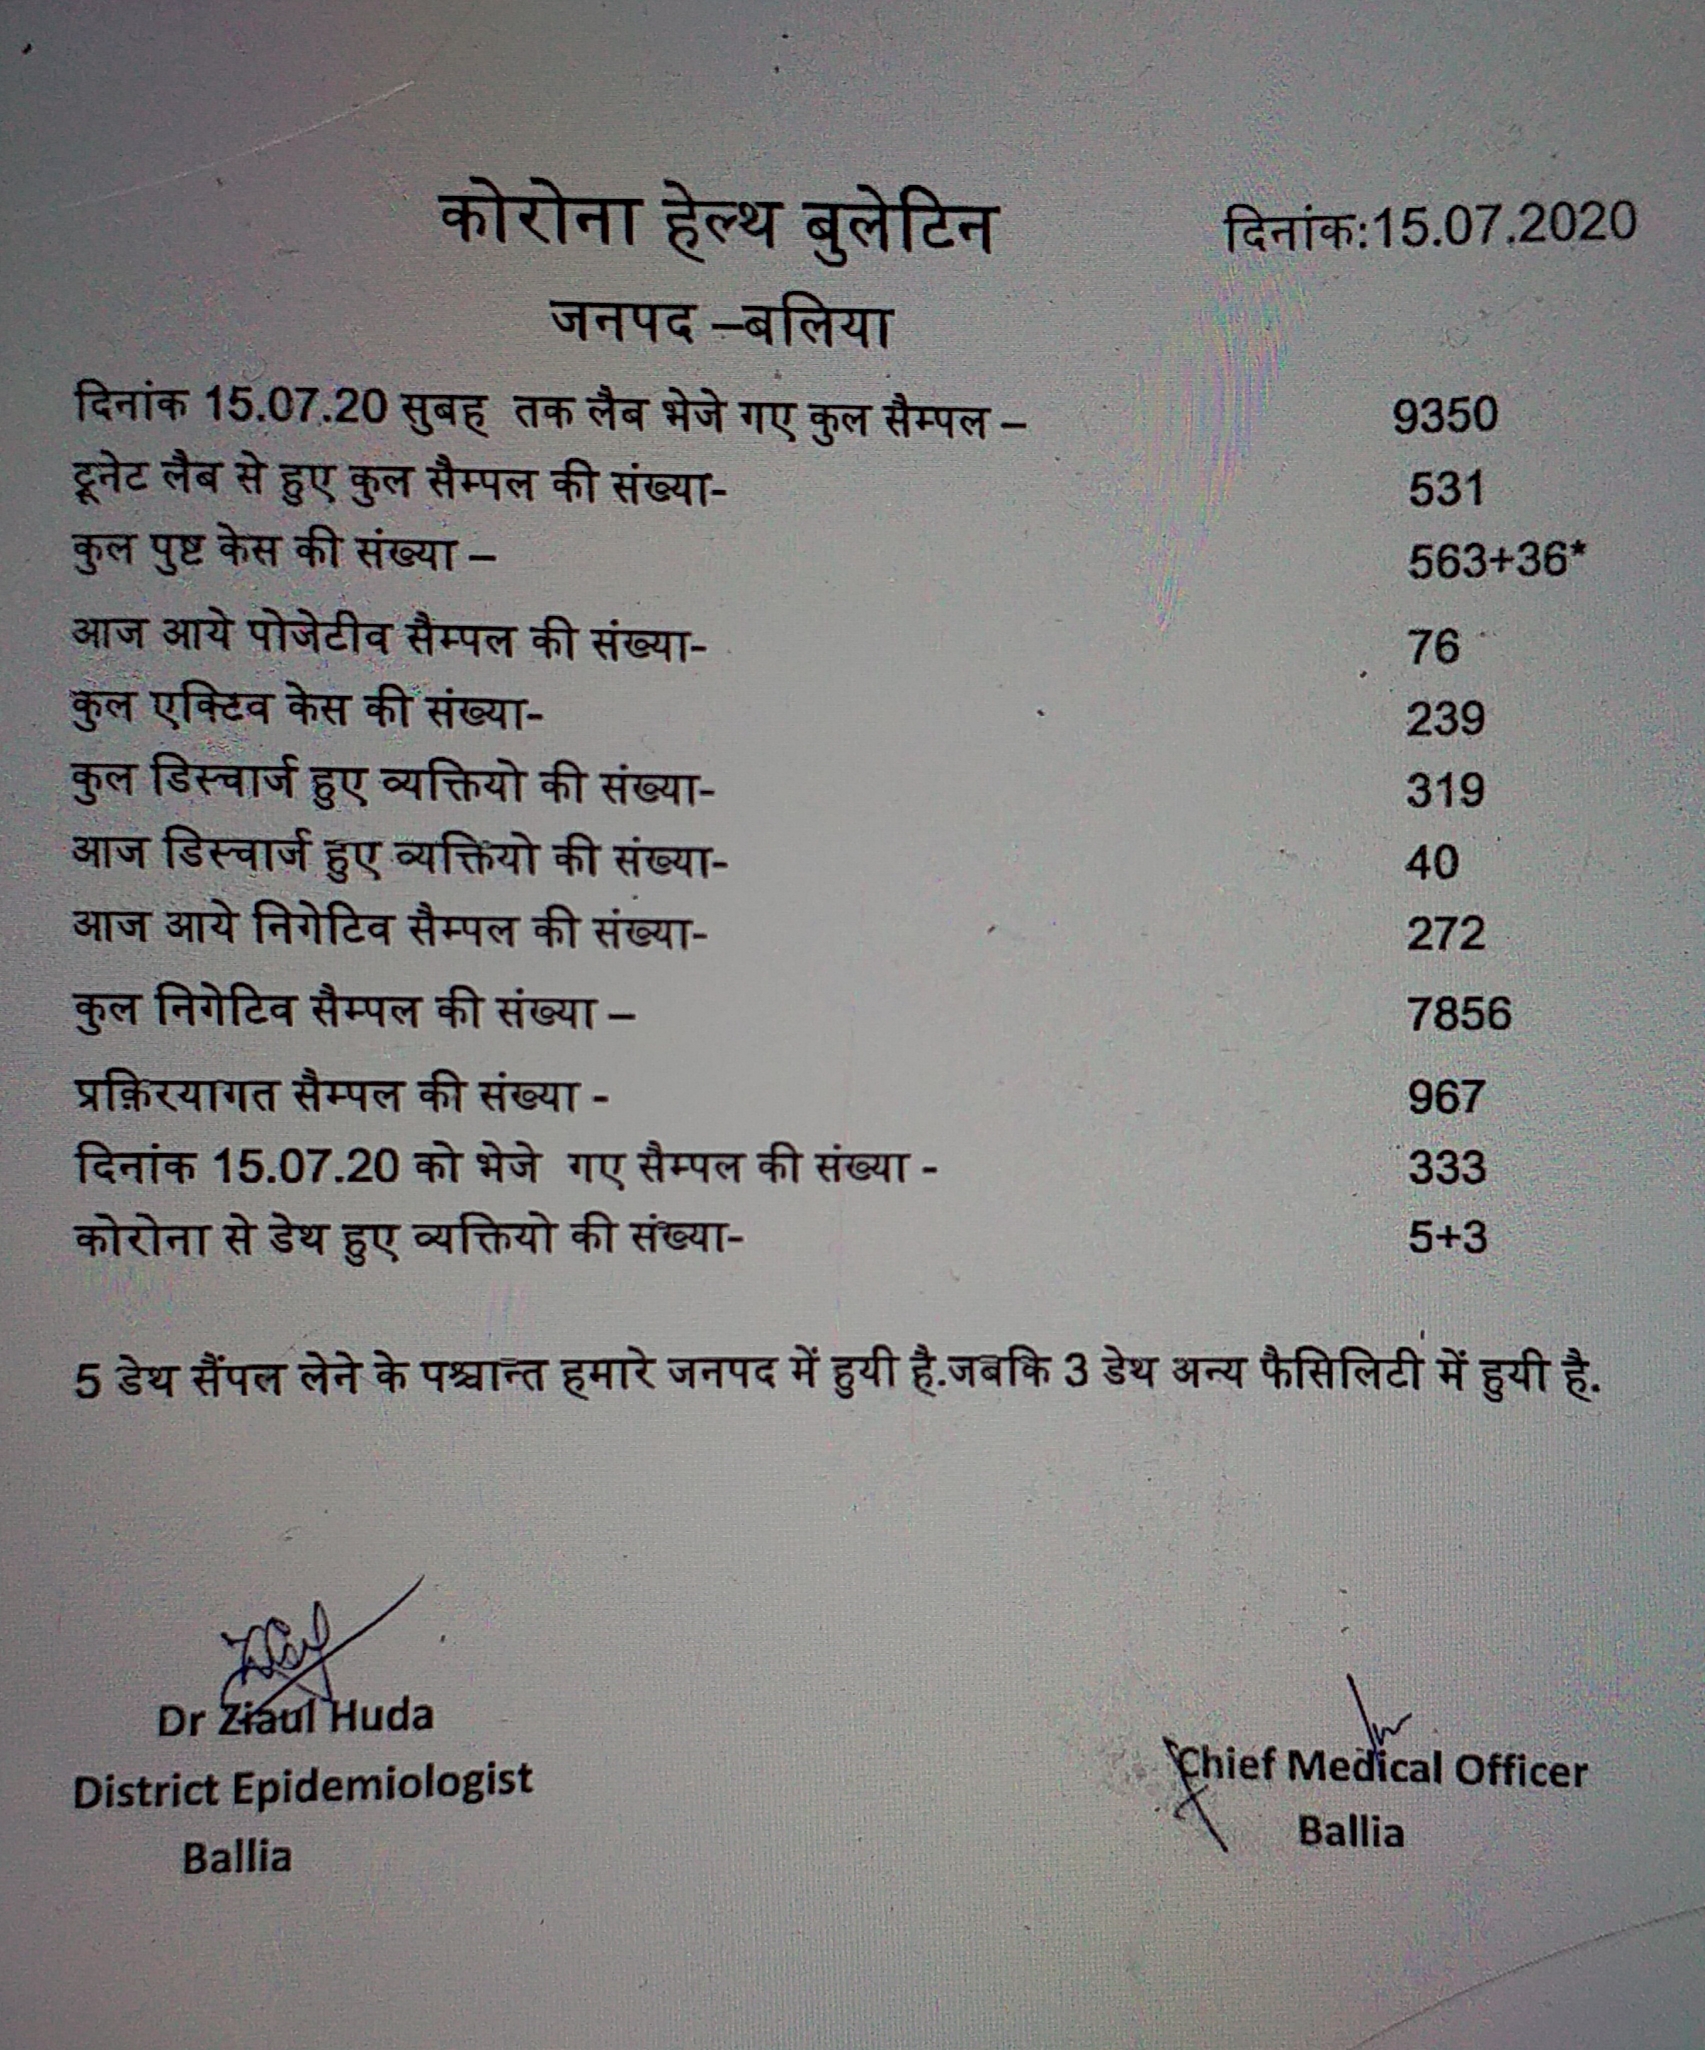 कोरोना हेल्थ बुलेटिन दिनांक:15.07.2020
जनपद –बलिया
दिनांक 15.07.20 सुबह तक लैब भेजे गए कुल सैम्पल – 9350
ट्रूनेट लैब से हुए कुल सैम्पल की संख्या- 531
कुल पुष्ट केस की संख्या – 563+36*
आज आये पोजेटीव सैम्पल की संख्या- 76
कुल एक्टिव केस की संख्या- 239
कुल डिस्चार्ज हुए व्यक्तियो की संख्या- 319
आज डिस्चार्ज हुए व्यक्तियो की संख्या- 40
आज आये निगेटिव सैम्पल की संख्या- 272
कुल निगेटिव सैम्पल की संख्या – 7856
प्रक़िरयागत सैम्पल की संख्या - 967
दिनांक 15.07.20 को भेजे गए सैम्पल की संख्या - 333
कोरोना से डेथ हुए व्यक्तियो की संख्या- 5+3
5 डेथ सैंपल लेने के पश्चान्त हमारे जनपद में हुयी है.जबकि 3 डेथ अन्य फैसिलिटी में हुयी है.
Dr Ziaul Huda
District Epidemiologist
Ballia
Chief Medical Officer
Ballia